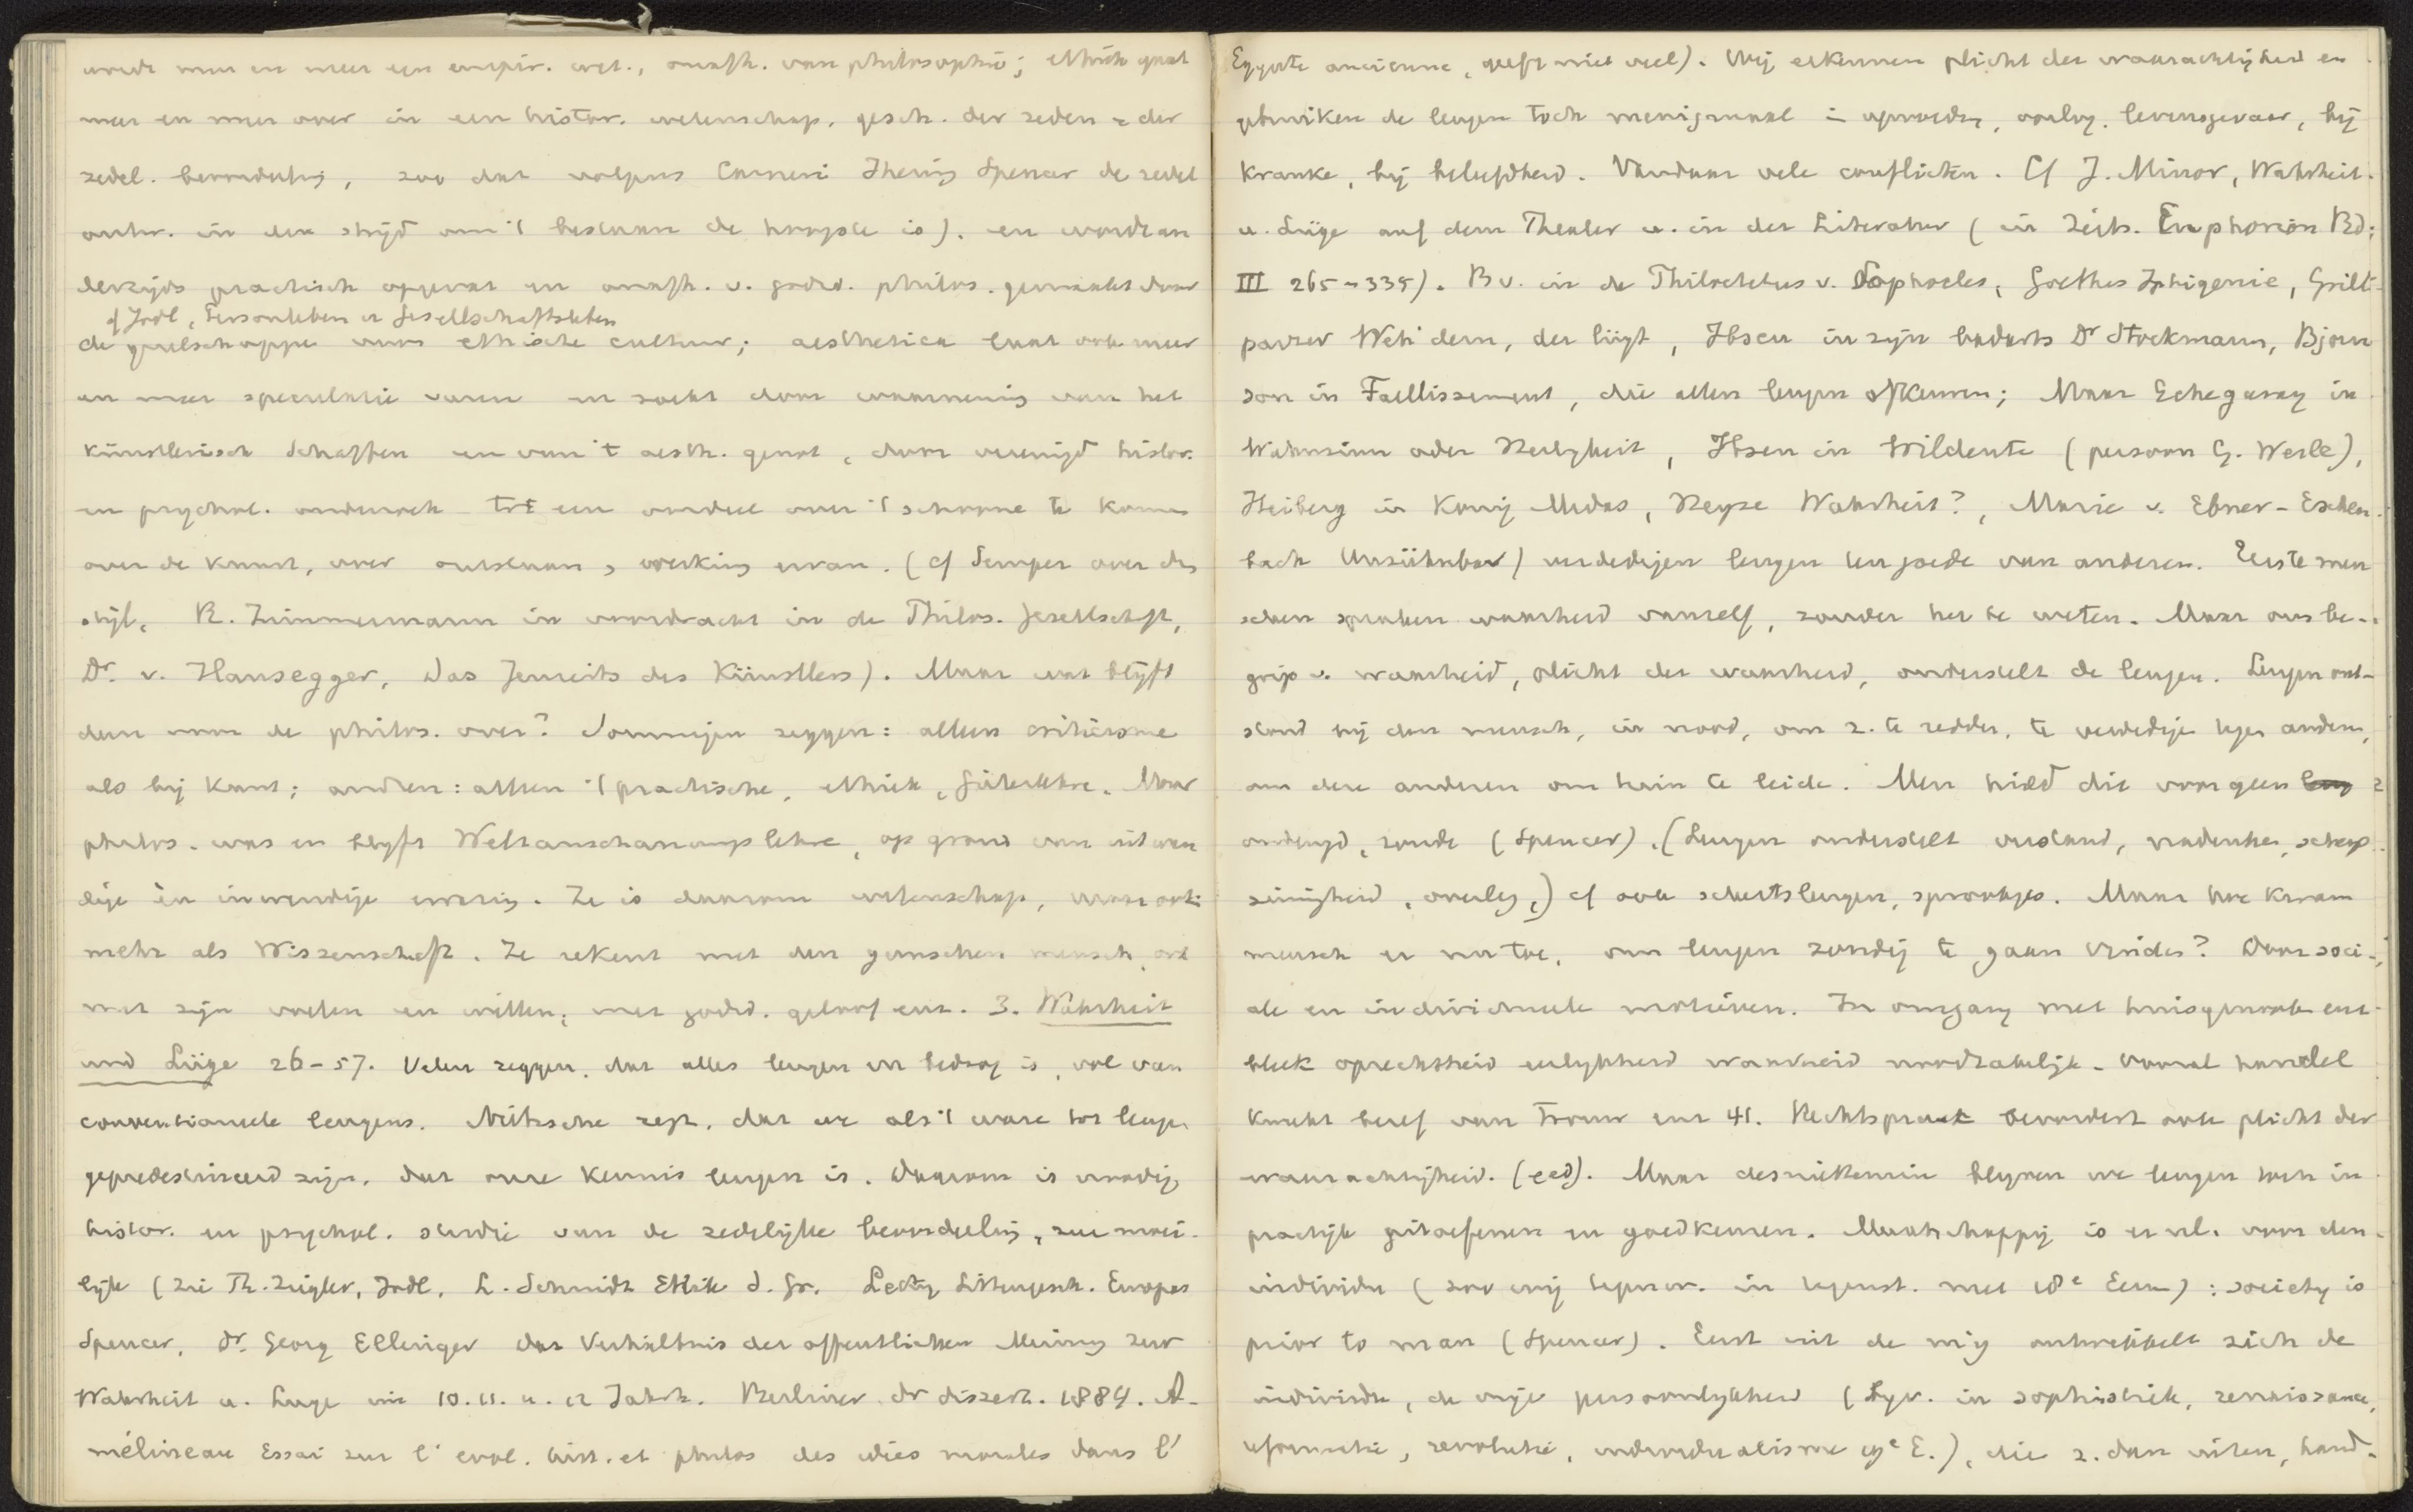 wordt meer en meer een empir. wet., onafh. van philosophie; ethiek gaat
meer en meer over in een histor. wetenschap, gesch. der zeden en der
zedel. beoordeling, zoo dat volgens Carneri Ihering Spencer de zedel
autor. in den strijd om 't bestaan de hoogste is). en wordt an
derzijds practisch opgevat en onafh. v. godsd. philos. gemaakt door
cf Jodl, Gesellschaftsleben
de genootschappen voor ethische cultuur; aesthetica laat ook meer
en meer speculatie varen en zoekt door waarneming van het
künstlerisch Schaffen en van 't aesth. genot, door vereenigd histor.
en psychol. onderzoek tot een oordeel over 't schoone te komen
over de kunst, over ontstaan, werking ervan. (cf Semper over den
stijl, R. Zimmermann in voordracht in de Philos. Gesellschaft,
Dr. v. Hausegger, Das Jenseits des Künstlers). Maar wat blijft
dan voor de philos. over? Sommigen zeggen: alleen criticisme
als bij Kant; anderen: alleen 't practische, ethiek, Güterlehre. Maar
philos. was en blijft Weltanschauungslehre, op grond van uitwen
dige en inwendige ervaring. Ze is daarom wetenschap, maar ook
mehr als Wissenschaft. Ze rekent met den ganschen mensch, ook
met zijn voelen en willen, met godsd. geloof enz. 3. Wahrheit
und Lüge 26-57. Velen zeggen, dat alles leugen en bedrog is, vol van
conventioneele leugens. Nietzsche zegt, dat we als 't ware tot leugen
gepredestineerd zijn, dat onze kennis leugen is. Daarom is noodig
histor. en psychol. studie van de zedelijke beoordeling, zeer moei-
lijk (zie Th. Ziegler, Jodl, L. Schmidt Ethik d. Gr. Lecky Sittengesch. Europas
Spencer, Dr. Georg Ellinger das Verhältnis der öffentlichen Meinung zur
Wahrheit u. Luge im 10. 11. u. 12 Jahrh. Berliner dr dissert. 1884. A-
mélineau Essai sur l' evol. hist. et philos des idées morales dans l'
Egypte ancienne, geeft niet veel). Wij erkennen plicht der waarachtigheid en
gebruiken de leugen toch menigmaal in opvoeding, oorlog, levensgevaar, bij
kranke, bij beleefdheid. Vandaar vele conflicten. Cf J. Minor, Wahrheit
u. Lüge auf dem Theater u. in der Literatur (in Zeits. Euphorion Bd.
III 265-335). Bv. in de Philoctetus v. Sophocles, Goethes Iphigenie, Grill-
parzer Weh dem, der lügt, Ibsen in zijn Dr Stockmann, Bjorn
son in Faellissement, die allen leugen afkeuren; Maar Echegaray in
Wahnsinn oder Heiligkeit, Ibsen in Wildente (persoon G. Werle),
Heiberg in Konig Midas, Reyse Wahrheit?, Marie v. Ebner-Eschen-
bach Unsühnbar) verdedigen leugen ten goede van anderen. Eerste men
schen spraken waarheid vanzelf, zonder het te weten. Maar ons be-
grip v. waarheid, plicht der waarheid, onderstelt de leugen. Leugen ont-
stond bij den mensch, in nood, om z. te redden, te verdedigen tegen anderen,
om dere anderen om tuin te leiden. Men hield die voor geen
ondeugd, zonde (Spencer). (Leugen onderstelt verstand, nadenken, scherp
zinnigheid, overleg,) cf ook schertsleugen, sprookjes. Maar hoe kwam
mensch er nu toe, om leugen zondig te gaan vinden? Door soci-
ale en individueele motieven. In omgang met huisgenooten enz
bleek oprechtheid eerlijkheid waarheid noodzakelijk. Vooral handel
kweekt besef van trouw enz 41. Rechtspraak bevordert ook plicht der
waarachtigheid. (eed). Maar desniettemin blijven we leugen toch in
practijk uitoefenen en goedkeuren. Maatschappij is er nl. voor den
individu (zoo wij tegenw. in tegenst. met 18e Eeuw): society is
prior to man (Spencer). Eerst uit de mij ontwikkelt zich de
individu, de vrije persoonlijkheid (Bijv. in sophistiek, renaissance,
reformatie, revolutie, individualisme 19e E.), die z. dan uiten, hand-